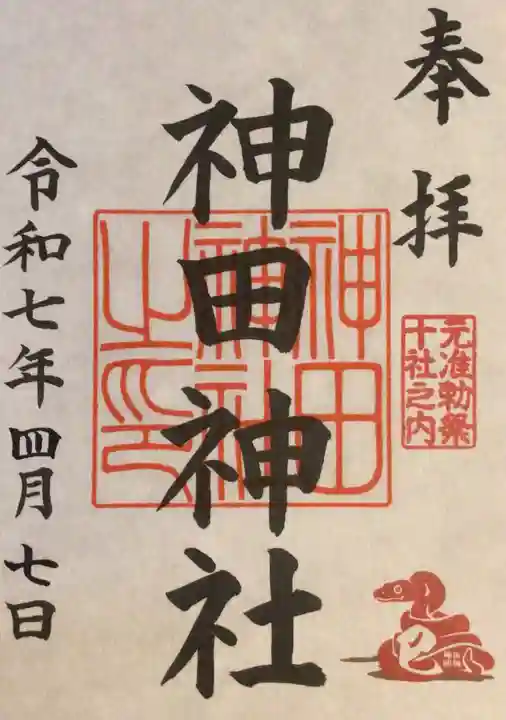 奉拝
元准勅祭
十社之内
巳
神田神社
神田
神社
之印
令和七年四月七日